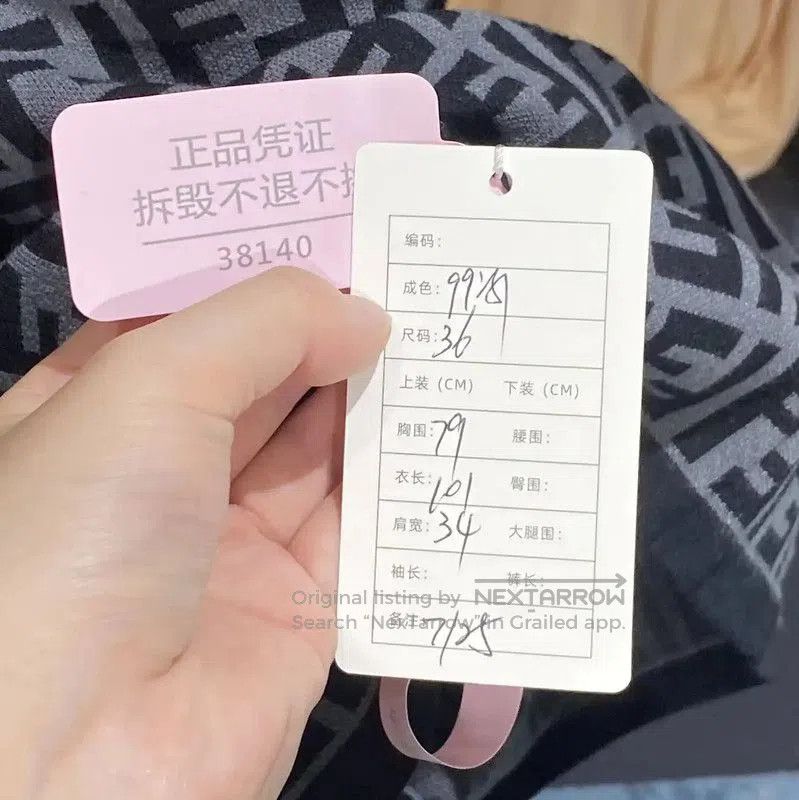 正品凭证
拆毁不退不
38140
编码：
成色：99新
尺码：36
上装 (CM) 下装 (CM)
胸围：79 腰围：
衣长：101 臀围：
肩宽：34 大腿围：
袖长： 裤长：
备注：7125
Original listing by NEXTARROW
Search “NextArrow” in Grailed app.